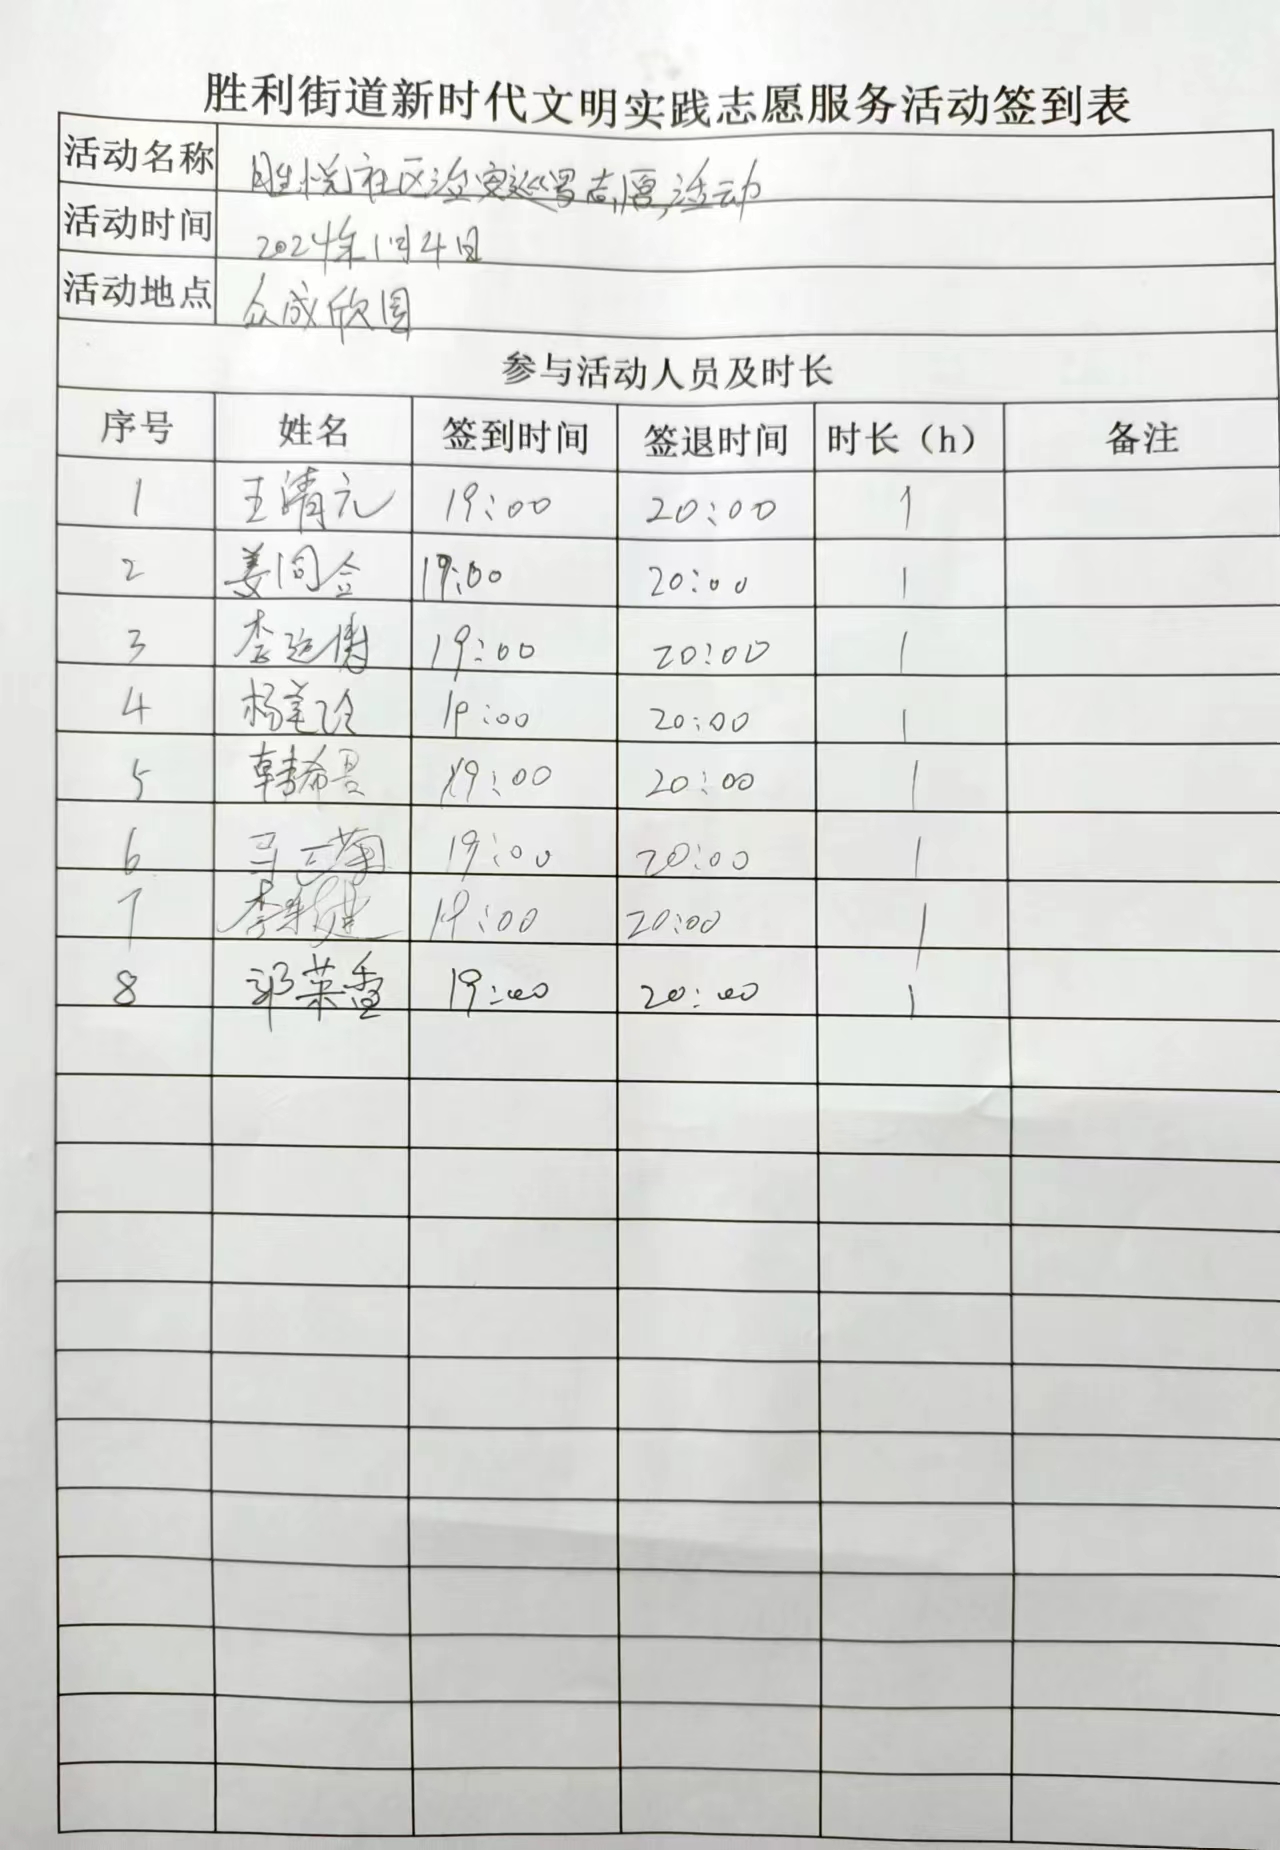 胜利街道新时代文明实践志愿服务活动签到表
活动名称 胜悦社区治安巡逻志愿活动
活动时间 2024年1月4日
活动地点 众成欣园
参与活动人员及时长
序号 姓名 签到时间 签退时间 时长（h） 备注
1 王清元 19:00 20:00 1
2 姜同合 19:00 20:00 1
3 李延 19:00 20:00 1
4 杨 玲 19:00 20:00 1
5 韩希 19:00 20:00 1
6 马 菊 19:00 20:00 1
7 李 建 19:00 20:00 1
8 邓英香 19:00 20:00 1